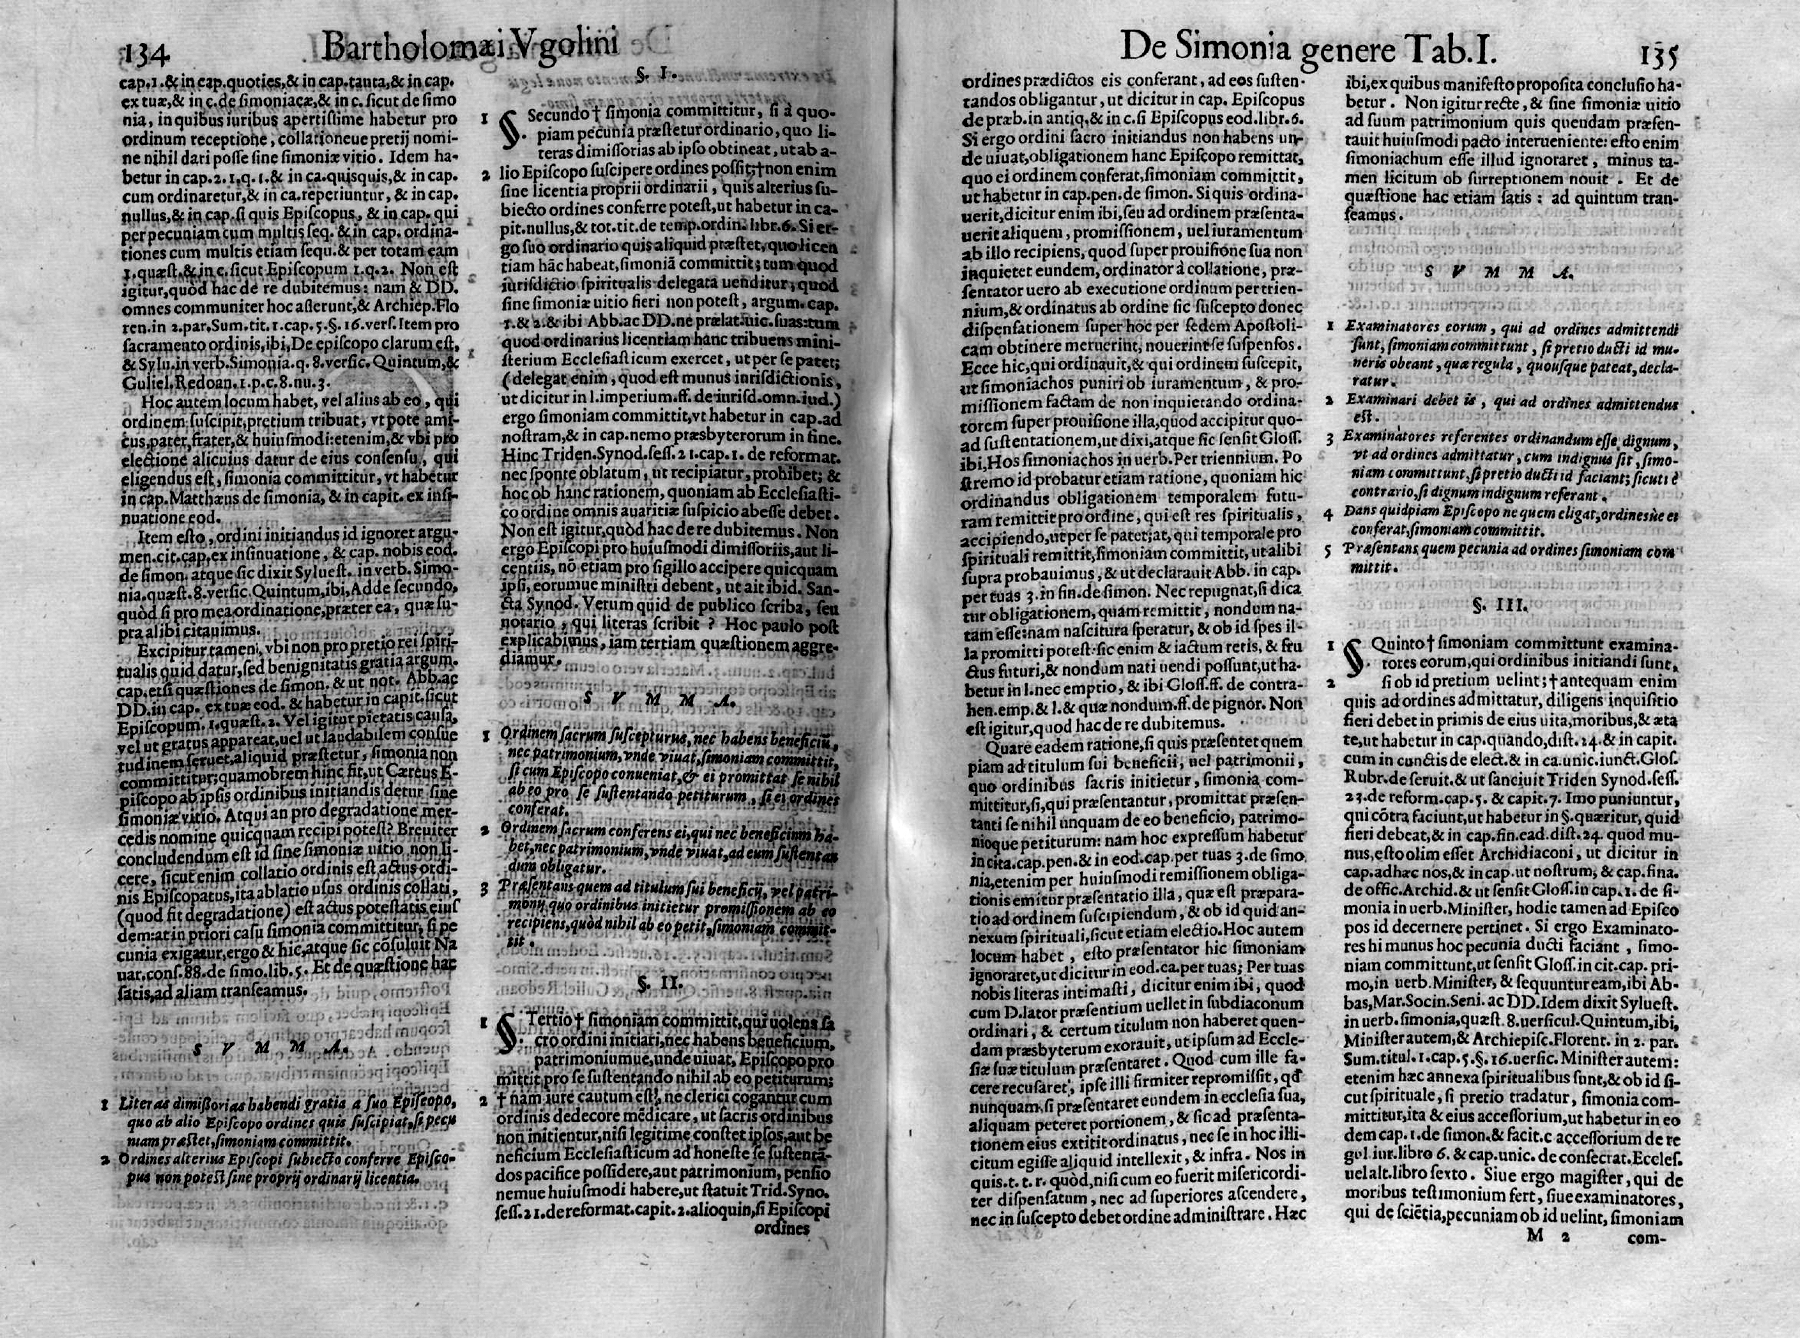 134
Bartholomæi Vgolini
cap.1.& in cap.quoties,& in cap.tanta,& in cap.
ex tuæ,& in c.de simoniacæ,& in c. sicut de simo
nia, in quibus iuribus apertissime habetur pro
ordinum receptione, collationeue pretij nomi-
ne nihil dari posse sine simoniæ vitio. Idem ha-
betur in cap.2.1.q.1.& in ca.quisquis,& in cap.
cum ordinaretur,& in ca.reperiuntur, & in cap.
nullus,& in cap.si quis Episcopus, & in cap. qui
per pecuniam cum multis seq.& in cap. ordina-
tiones cum multis etiam sequ.& per totam eam
1.quæst.& in c.sicut Episcopum 1.q.2. Non est
igitur,quòd hac de re dubitemus: nam & DD.
omnes communiter hoc asserunt,& Archiep.Flo
ren.in 2.par.Sum.tit.1.cap.5.§.16.vers.Item pro
sacramento ordinis,ibi,De episcopo clarum est,
& Sylu.in verb.Simonia.q.8.versic.Quintum,&
Guliel.Redoan.1.p.c.8.nu.3.
Hoc autem locum habet, vel alius ab eo, qui
ordinem suscipit,pretium tribuat, vt pote ami-
cus,pater,frater,& huiusmodi:etenim,& vbi pro
electione alicuius datur de eius consensu, qui
eligendus est, simonia committitur, vt habetur
in cap.Matthæus de simonia, & in capit. ex insi-
nuatione eod.
Item esto, ordini initiandus id ignoret argu-
men.cit.cap.ex insinuatione, & cap. nobis eod.
de simon. atque sic dixit Syluest. in verb. Simo-
nia.quæst.8.versic.Quintum,ibi,Adde secundo,
quòd si pro mea ordinatione,præter ea, quæ su-
pra alibi citauimus.
Excipitur tamen, vbi non pro pretio rei spiri-
tualis quid datur,sed benignitatis gratia argum.
cap.etsi quæstiones de simon. & ut not. Abb.ac
DD.in cap. ex tuæ eod. & habetur in capit. sicut
Episcopum.1.quæst.2. Vel igitur pietatis causa,
vel ut gratus appareat,uel ut laudabilem consue
tudinem seruet,aliquid præstetur, simonia non
committitur;quamobrem hinc fit,ut Cæreus E-
piscopo ab ipsis ordinibus initiandis detur sine
simoniæ vitio. Atqui an pro degradatione mer-
cedis nomine quicquam recipi potest? Breuiter
concludendum est id sine simoniæ uitio non li-
cere, sicut enim collatio ordinis est actus ordi-
nis Episcopatus,ita ablatio usus ordinis collati,
(quod fit degradatione) est actus potestatis eius
dem:at in priori casu simonia committitur, si pe
cunia exigatur,ergo & hic,atque sic cōsuluit Na
uar.cons.88.de simo.lib.5. Et de quæstione hac
satis,ad aliam transeamus.
S V M M A.
1 Literas dimissorias habendi gratia a suo Episcopo,
quo ab alio Episcopo ordines quis suscipiat,si pecu
niam præstet,simoniam committit.
2 Ordines alterius Episcopi subiecto conferre Episco-
pus non potest sine proprij ordinarij licentia.
§. I.
1 S. Secundo† simonia committitur, si à quo-
piam pecunia præstetur ordinario, quo li-
teras dimissorias ab ipso obtineat, ut ab a-
2 lio Episcopo suscipere ordines possit;†non enim
sine licentia proprii ordinarii, quis alterius su-
biecto ordines conferre potest,ut habetur in ca-
pit.nullus,& tot.tit.de temp.ordin.libr.6. Si er-
go suo ordinario quis aliquid præstet, quo licen
tiam hāc habeat,simoniā committit; tum quod
iurisdictio spiritualis delegata uenditur; quod
sine simoniæ uitio fieri non potest, argum.cap.
1.& 2.& ibi Abb.ac DD.ne prælat.uic.suas:tum
quod ordinarius licentiam hanc tribuens mini-
sterium Ecclesiasticum exercet, ut per se patet;
(delegat enim, quod est munus iurisdictionis,
ut dicitur in l.imperium.ff.de iurisd.omn.iud.)
ergo simoniam committit,vt habetur in cap.ad
nostram,& in cap.nemo præsbyterorum in fine.
Hinc Triden.Synod.sess.21.cap.1. de reformat.
nec sponte oblatum, ut recipiatur, prohibet; &
hoc ob hanc rationem, quoniam ab Ecclesiasti-
co ordine omnis auaritiæ suspicio abesse debet.
Non est igitur,quòd hac de re dubitemus. Non
ergo Episcopi pro huiusmodi dimissoriis,aut li-
centiis, nō etiam pro sigillo accipere quicquam
ipsi, eorumue ministri debent, ut ait ibid. San-
cta Synod. Verum quid de publico scriba, seu
notario, qui literas scribit? Hoc paulo post
explicabimus, iam tertiam quæstionem aggre-
diamur.
S V M M A.
1 Ordinem sacrum suscepturus, nec habens beneficiū,
nec patrimonium, vnde viuat,simoniam committit,
si cum Episcopo conueniat,& ei promittat se nihil
ab eo pro se sustentando petiturum, si ei ordines
conferat.
2 Ordinem sacrum conferens ei,qui nec beneficium ha-
bet,nec patrimonium,vnde viuat,ad eum sustentan
dum obligatur.
3 Præsentans quem ad titulum sui beneficij, vel patri-
monij,quo ordinibus initietur promissionem ab eo
recipiens,quòd nihil ab eo petit,simoniam commit-
tit.
§. II.
1 S. Tertio† simoniam committit,qui uolens sa
cro ordini initiari,nec habens beneficium,
patrimoniumue,unde uiuat, Episcopo pro
mittit pro se sustentando nihil ab eo petiturum;
2 † nam iure cautum est, ne clerici cogantur cum
ordinis dedecore mēdicare, ut sacris ordinibus
non initientur,nisi legitime constet ipsos,aut be
neficium Ecclesiasticum ad honeste se sustentā-
dos pacifice possidere,aut patrimonium, pensio
nemue huiusmodi habere,ut statuit Trid.Syno.
sess.21.de reformat.capit.2.alioquin,si Episcopi
ordines
De Simonia genere Tab.I.
135
ordines prædictos eis conferant, ad eos susten-
tandos obligantur, ut dicitur in cap. Episcopus
de præb.in antiq.& in c.si Episcopus eod.libr.6.
Si ergo ordini sacro initiandus non habens un-
de uiuat,obligationem hanc Episcopo remittat,
quo ei ordinem conferat,simoniam committit,
ut habetur in cap.pen.de simon. Si quis ordina-
uerit,dicitur enim ibi,seu ad ordinem præsenta-
uerit aliquem, promissionem, uel iuramentum
ab illo recipiens, quod super prouisione sua non
inquietet eundem, ordinator à collatione, præ-
sentator uero ab executione ordinum per trien-
nium,& ordinatus ab ordine sic suscepto donec
dispensationem super hoc per sedem Apostoli-
cam obtinere meruerint, nouerint se suspensos.
Ecce hic,qui ordinauit,& qui ordinem suscepit,
ut simoniachos puniri ob iuramentum, & pro-
missionem factam de non inquietando ordina-
torem super prouisione illa,quod accipitur quo-
ad sustentationem,ut dixi,atque sic sensit Gloss.
ibi,Hos simoniachos in uerb.Per triennium. Po
stremo id probatur etiam ratione, quoniam hic
ordinandus obligationem temporalem futu-
ram remittit pro ordine, qui est res spiritualis,
accipiendo,ut per se patet;at, qui temporale pro
spirituali remittit,simoniam committit,ut alibi
supra probauimus, & ut declarauit Abb. in cap.
per tuas 3.in fin.de simon. Nec repugnat,si dica
tur obligationem, quam remittit, nondum na-
tam esse:nam nascitura speratur, & ob id spes il-
la promitti potest:sic enim & iactum retis, & fru
ctus futuri,& nondum nati uendi possunt,ut ha-
betur in l.nec emptio, & ibi Gloss.ff. de contra-
hen.emp.& l.& quæ nondum.ff.de pignor. Non
est igitur,quod hac de re dubitemus.
Quare eadem ratione, si quis præsentet quem
piam ad titulum sui beneficii, uel patrimonii,
quo ordinibus sacris initietur, simonia com-
mittitur,si, qui præsentantur, promittat præsen-
tanti se nihil unquam de eo beneficio, patrimo-
nioque petiturum: nam hoc expressum habetur
in cita.cap.pen.& in eod.cap.per tuas 3.de simo
nia,etenim per huiusmodi remissionem obliga-
tionis emitur præsentatio illa, quæ est præpara-
tio ad ordinem suscipiendum, & ob id quid an-
nexum spirituali,sicut etiam electio.Hoc autem
locum habet, esto præsentator hic simoniam
ignoraret,ut dicitur in eod.ca.per tuas; Per tuas
nobis literas intimasti, dicitur enim ibi, quod
cum D.lator præsentium uellet in subdiaconum
ordinari, & certum titulum non haberet quen-
dam præsbyterum exorauit, ut ipsum ad Eccle-
siæ suæ titulum præsentaret. Quod cum ille fa-
cere recusaret, ipse illi firmiter repromissit, qđ
nunquam,si præsentaret eundem in ecclesia sua,
aliquam peteret portionem, & sic ad præsenta-
tionem eius extitit ordinatus, nec se in hoc illi-
citum egisse aliquid intellexit, & infra. Nos in
quis.t.t.r.quòd,nisi cum eo fuerit misericordi-
ter dispensatum, nec ad superiores ascendere,
nec in suscepto debet ordine administrare. Hæc
ibi,ex quibus manifesto proposita conclusio ha-
betur. Non igitur recte, & sine simoniæ uitio
ad suum patrimonium quis quendam præsen-
tauit huiusmodi pacto interueniente: esto enim
simoniachum esse illud ignoraret, minus ta-
men licitum ob surreptionem nouit. Et de
quæstione hac etiam satis: ad quintum tran-
seamus.
S V M M A.
1 Examinatores eorum, qui ad ordines admittendi
sunt, simoniam committunt, si pretio ducti id mu-
neris obeant, quæ regula, quousque pateat, decla-
ratur.
2 Examinari debet is, qui ad ordines admittendus
est.
3 Examinatores referentes ordinandum esse dignum,
vt ad ordines admittatur, cum indignus sit, simo-
niam committunt,si pretio ducti id faciant; sicuti è
contrario,si dignum indignum referant.
4 Dans quidpiam Episcopo ne quem eligat,ordinesùe ei
conferat,simoniam committit.
5 Præsentans quem pecunia ad ordines simoniam com
mittit.
§. III.
1 S. Quinto† simoniam committunt examina-
tores eorum,qui ordinibus initiandi sunt,
2 si ob id pretium uelint;† antequam enim
quis ad ordines admittatur, diligens inquisitio
fieri debet in primis de eius uita,moribus,& æta
te,ut habetur in cap.quando,dist.24.& in capit.
cum in cunctis de elect.& in ca.unic.iunct.Glos.
Rubr.de seruit.& ut sanciuit Triden Synod.sess.
23.de reform.cap.5. & capit.7. Imo puniuntur,
qui cōtra faciunt,ut habetur in §.quæritur, quid
fieri debeat,& in cap.fin.ead.dist.24. quod mu-
nus,esto olim esset Archidiaconi, ut dicitur in
cap.ad hæc nos,& in cap.ut nostrum, & cap.fina.
de offic.Archid.& ut sensit Gloss.in cap.1. de si-
monia in uerb.Minister, hodie tamen ad Episco
pos id decernere pertinet. Si ergo Examinato-
res hi munus hoc pecunia ducti faciant, simo-
niam committunt,ut sensit Gloss.in cit.cap. pri-
mo,in uerb.Minister, & sequuntur eam,ibi Ab-
bas,Mar.Socin.Seni. ac DD.Idem dixit Syluest.
in uerb.simonia,quæst.8.uersicul.Quintum,ibi,
Minister autem,& Archiepisc.Florent. in 2. par.
Sum.titul.1.cap.5.§.16.uersic.Minister autem:
etenim hæc annexa spiritualibus sunt,& ob id si-
cut spirituale, si pretio tradatur, simonia com-
mittitur,ita & eius accessorium,ut habetur in eo
dem cap.1.de simon.& facit.c accessorium de re
gul.iur.libro 6.& cap.unic.de consecrat.Eccles.
uel alt.libro sexto. Siue ergo magister, qui de
moribus testimonium fert, siue examinatores,
qui de sciētia,pecuniam ob id uelint, simoniam
M 2
com-